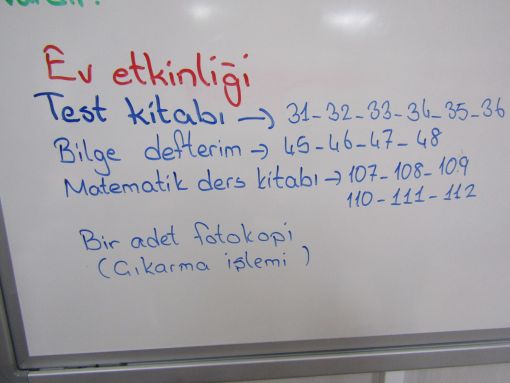 Ev etkinliği
Test kitabı → 31-32-33-34-35-36
Bilge defterim → 45-46-47-48
Matematik ders kitabı → 107-108-109
110-111-112
Bir adet fotokopi
(Çıkarma işlemi)